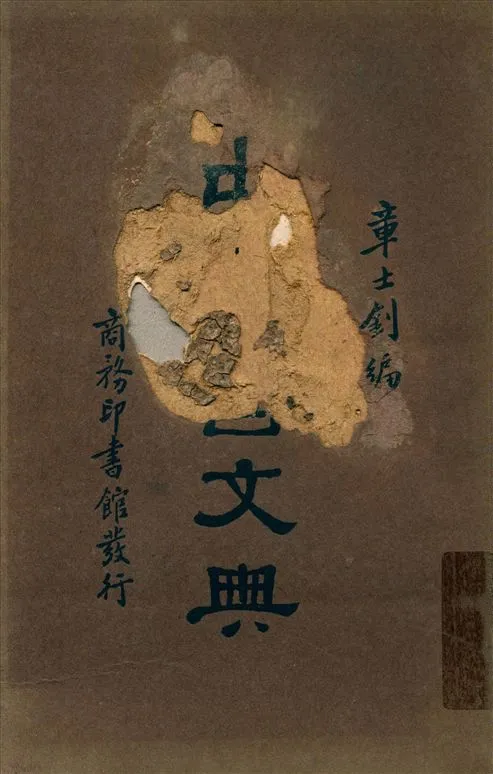 章士釗編
中文典
商務印書館發行